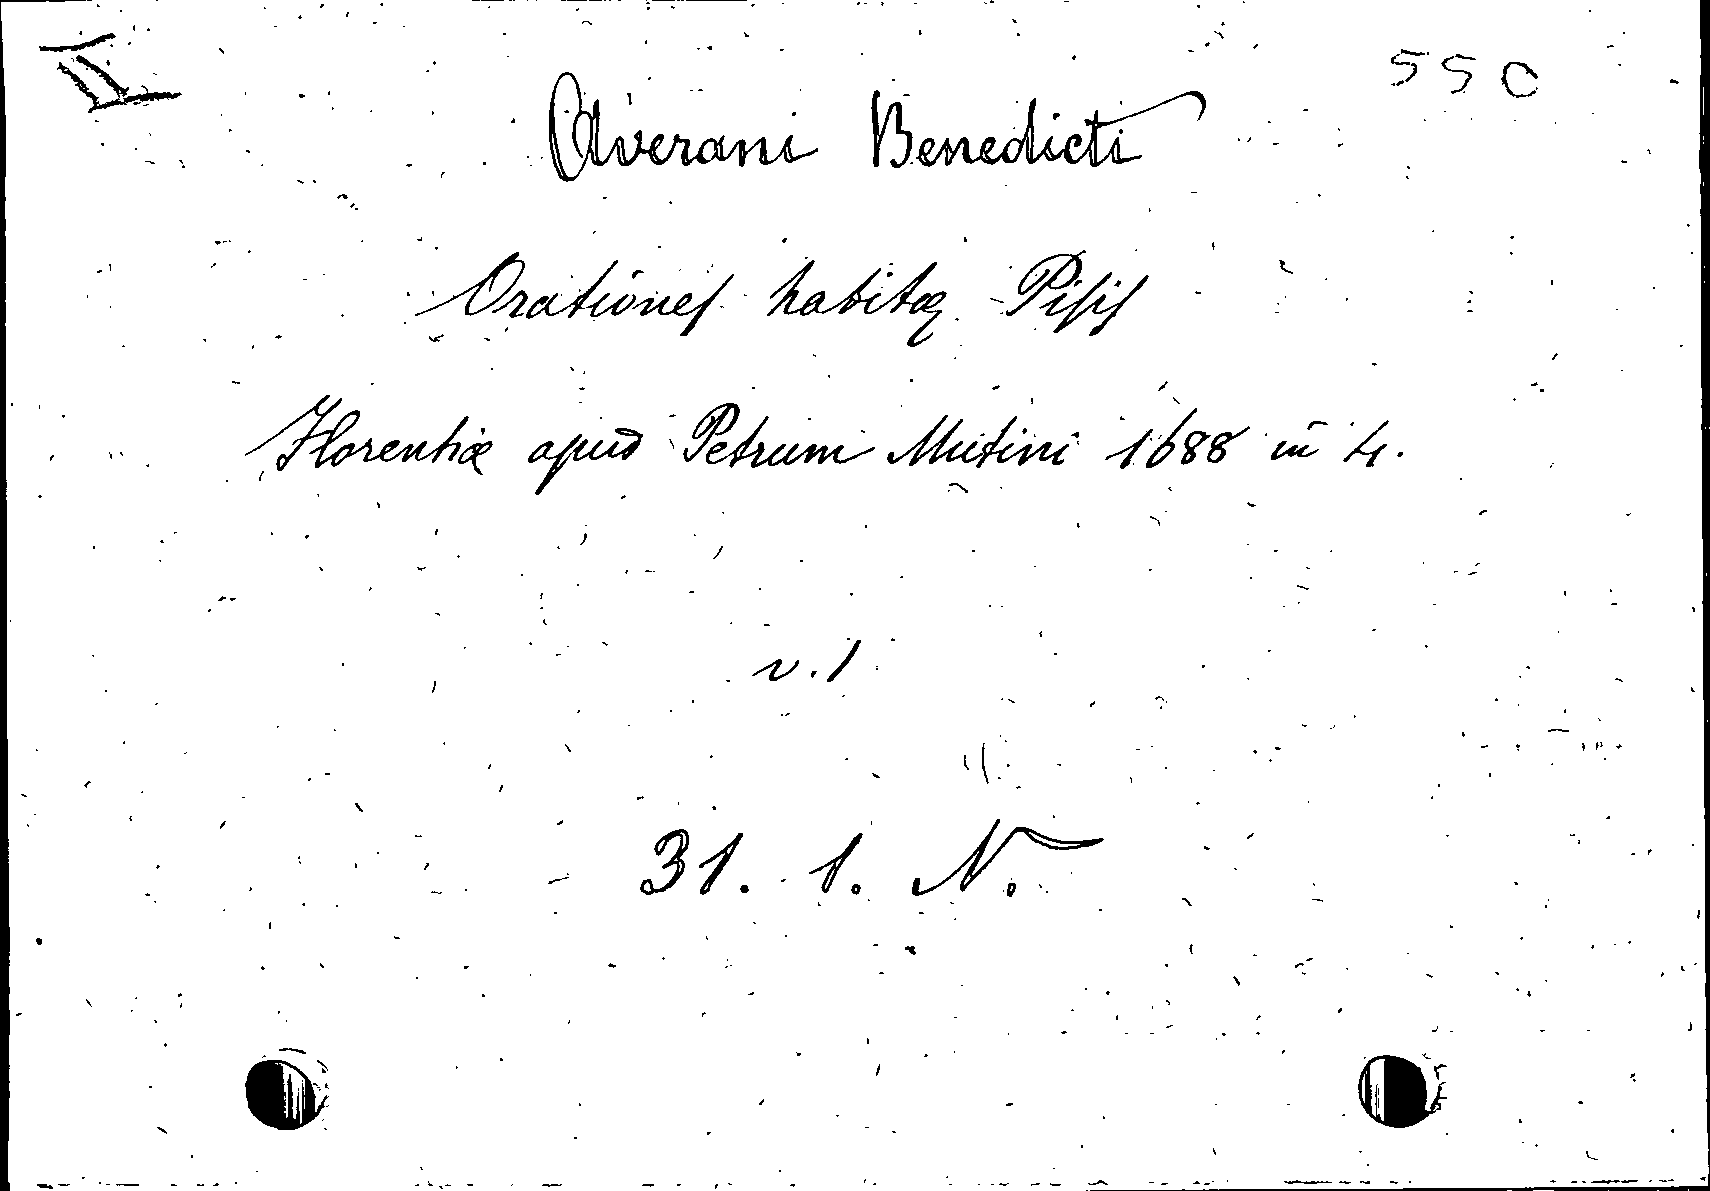 II
550
Averani Benedicti
Orationes habitæ Pisis
Florentiæ apud Petrum Mutini 1688 in 4.
v. 1
31. 1. N.